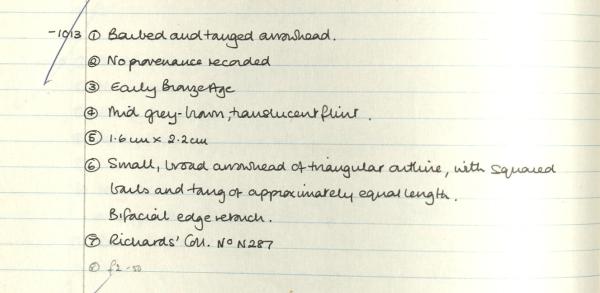 -1013 ① Barbed and tanged arrowhead.
② No provenance recorded
③ Early Bronze Age
④ Mid grey-brown, translucent flint.
⑤ 1.6cm x 2.2cm
⑥ Small, broad arrowhead of triangular outline, with squared
barbs and tang of approximately equal length.
Bifacial edge retouch.
⑦ Richards' Coll. No N287
⑧ £2-50